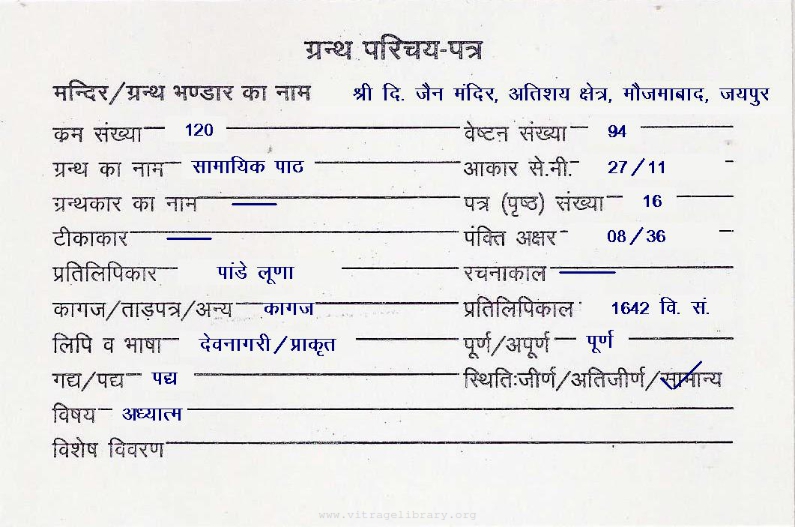 ग्रन्थ परिचय-पत्र
मन्दिर/ग्रन्थ भण्डार का नाम श्री दि. जैन मंदिर, अतिशय क्षेत्र, मौजमाबाद, जयपुर
कम संख्या 120 वेष्टन संख्या 94
ग्रन्थ का नाम सामायिक पाठ आकार से.मी. 27/11
ग्रन्थकार का नाम — पत्र (पृष्ठ) संख्या 16
टीकाकार — पंक्ति अक्षर 08/36
प्रतिलिपिकार पांडे लूणा रचनाकाल —
कागज/ताड़पत्र/अन्य कागज प्रतिलिपिकाल 1642 वि. सं.
लिपि व भाषा देवनागरी/प्राकृत पूर्ण/अपूर्ण पूर्ण
गद्य/पद्य पद्य स्थितिःजीर्ण/अतिजीर्ण/सामान्य
विषय अध्यात्म
विशेष विवरण
www.vitragelibrary.org